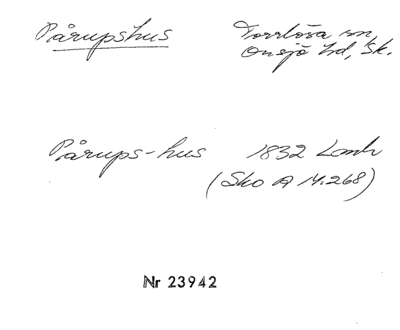 Pårupshus Torrlösa sn,
Onsjö hd, Sk.
Pårups-hus 1832 Lantm
(Sko A 14.268)
Nr 23942